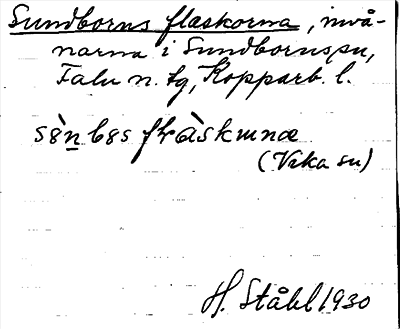 Sundborns flaskorna, invå-
narna i Sundbornspn,
Falu n. tg, Kopparb. l.
(Vika sn)
H. Ståhl 1930